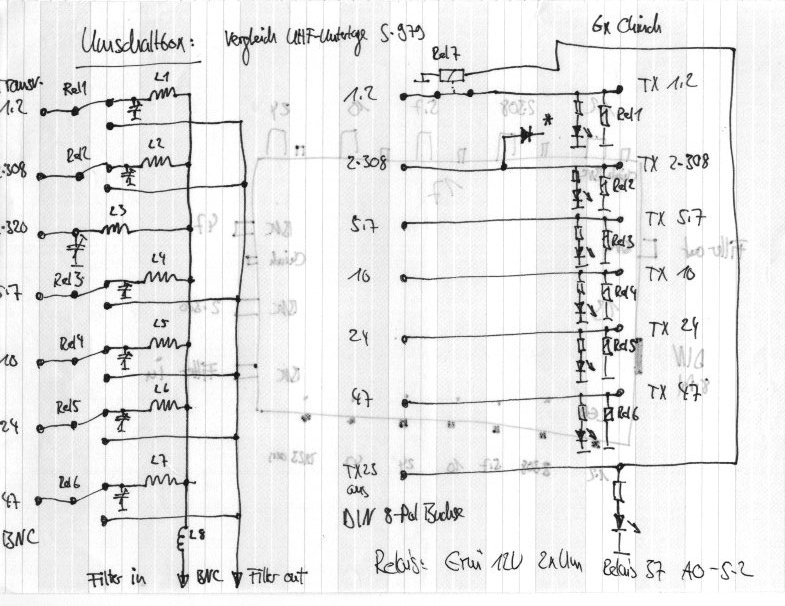 Umschaltbox:
Vergleich UHF-Unterlage S.979
6x Chinch
Transv.
1.2
Rel1
L1
2.308
Rel2
L2
2.320
L3
5.7
Rel3
L4
10
Rel4
L5
24
Rel5
L6
47
Rel6
L7
BNC
L8
Filter in
BNC
Filter out
Rel7
1.2
TX 1.2
Rel1
*
2.308
TX 2.308
Rel2
5.7
TX 5.7
Rel3
10
TX 10
Rel4
24
TX 24
Rel5
47
TX 47
Rel6
TX23
aus
DIN 8-Pol Buchse
Relais: 12V 2xUm Relais 37 AO-S.2